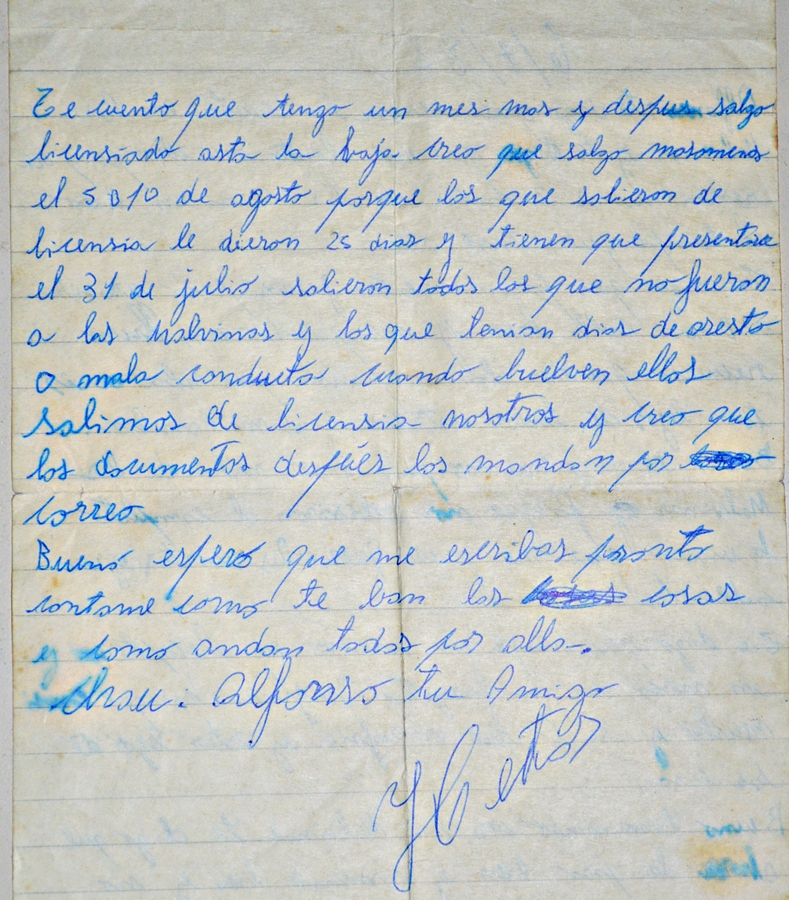 Te cuento que tengo un mes mas y despues salgo
licensiado asta la baja creo que salgo masomenos
el 5 o 10 de agosto porque los que salieron de
licensia le dieron 25 dias y tienen que presentarse
el 31 de julio salieron todos los que no fueron
a las Malvinas y los que tenian dias de aresto
o mala conducta cuando buelven ellos
salimos de licensia nosotros y creo que
los documentos despúes los mandan por
correo
Bueno espero que me escribas pronto
contame como te ban las cosas
y como andan todos por alla.
Chau. Alfonso tu Amigo